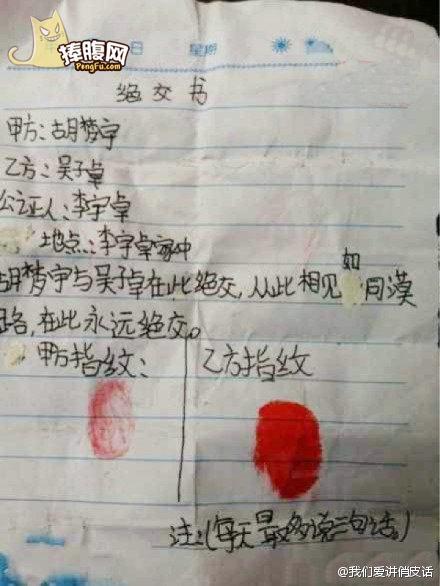 捧腹网
PengFu.com
日 星期
绝交书
甲方：胡梦宇
乙方：吴子卓
公证人：李宇卓
地点：李宇卓家中
胡梦宇与吴子卓在此绝交，从此相见如同漠
路，在此永远绝交。
甲方指纹： 乙方指纹
注：（每天最多说三句话。）
@我们爱讲俏皮话